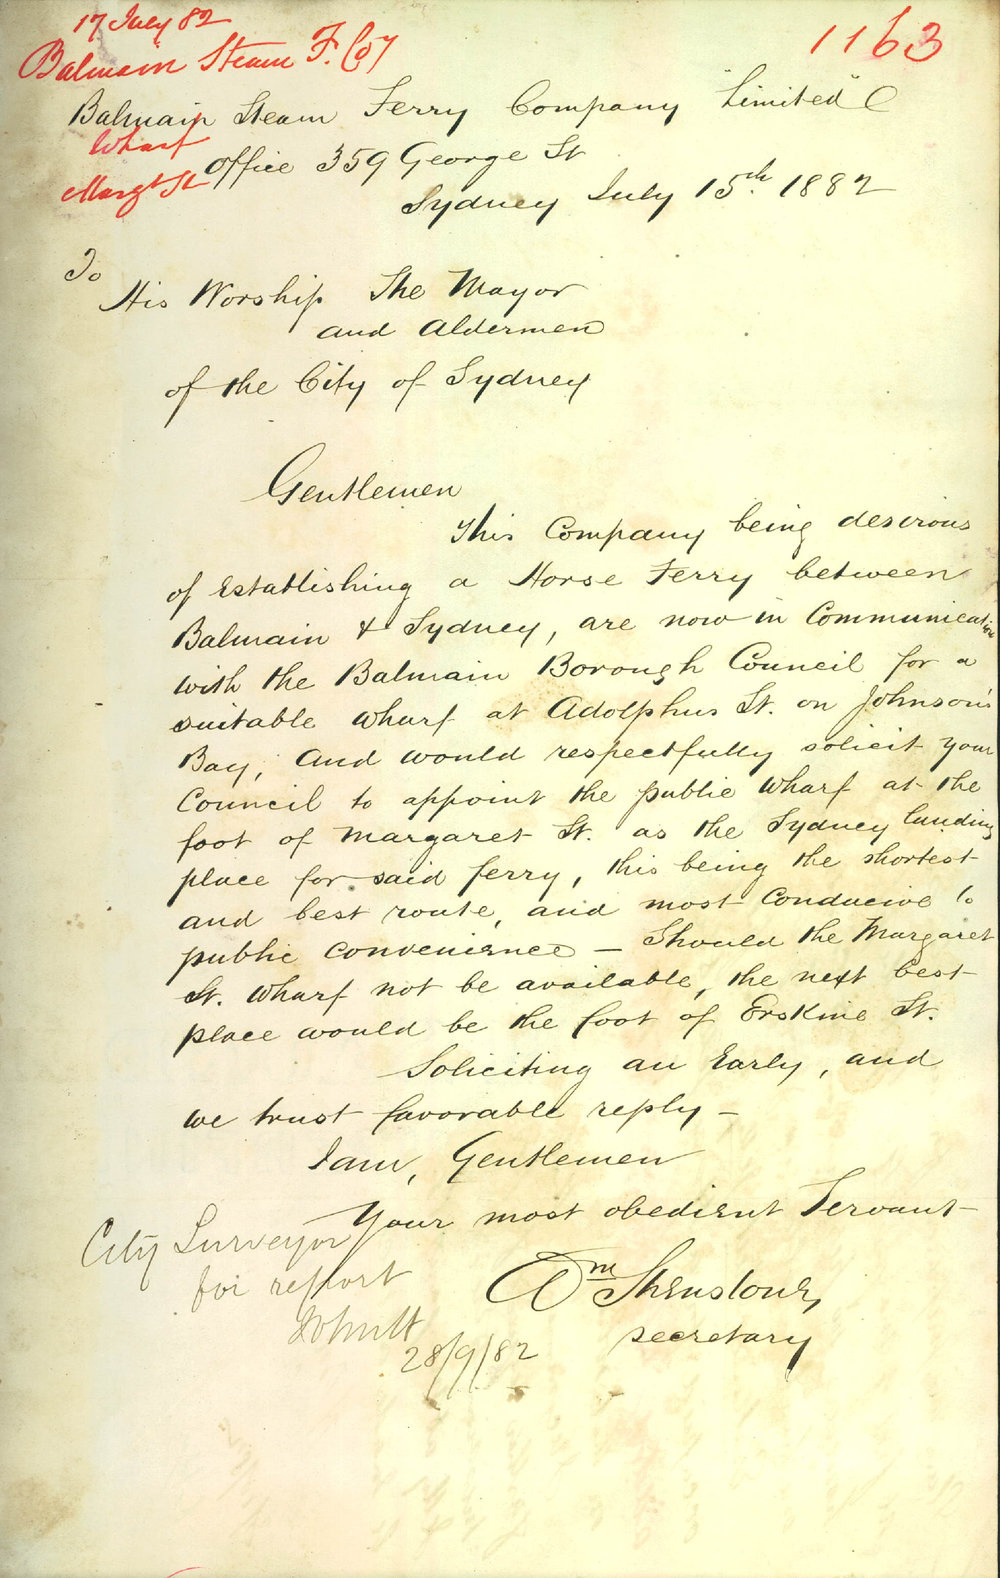 17 July 82
1163
Balmain Steam F. Coy
Balmain Steam Ferry Company Limited
Wharf
Office 359 George St
Margt St
Sydney July 15th. 1882
To
His Worship The Mayor
and Aldermen
of the City of Sydney
Gentlemen
This Company being desirous
of Establishing a Horse Ferry between
Balmain & Sydney, are now in Communication
with the Balmain Borough Council for a
suitable wharf at Adolphus St. on Johnson's
Bay, and would respectfully solicit your
Council to appoint the public wharf at the
foot of Margaret St. as the Sydney landing
place for said ferry, this being the shortest
and best route, and most conducive to
public convenience — Should the Margaret
St. wharf not be available, the next best
place would be the foot of Erskine St.
Soliciting an Early, and
we trust favorable reply —
I am, Gentlemen
Your most obedient Servant
City Surveyor
for report
Wm Shenstone,
secretary
28/9/82